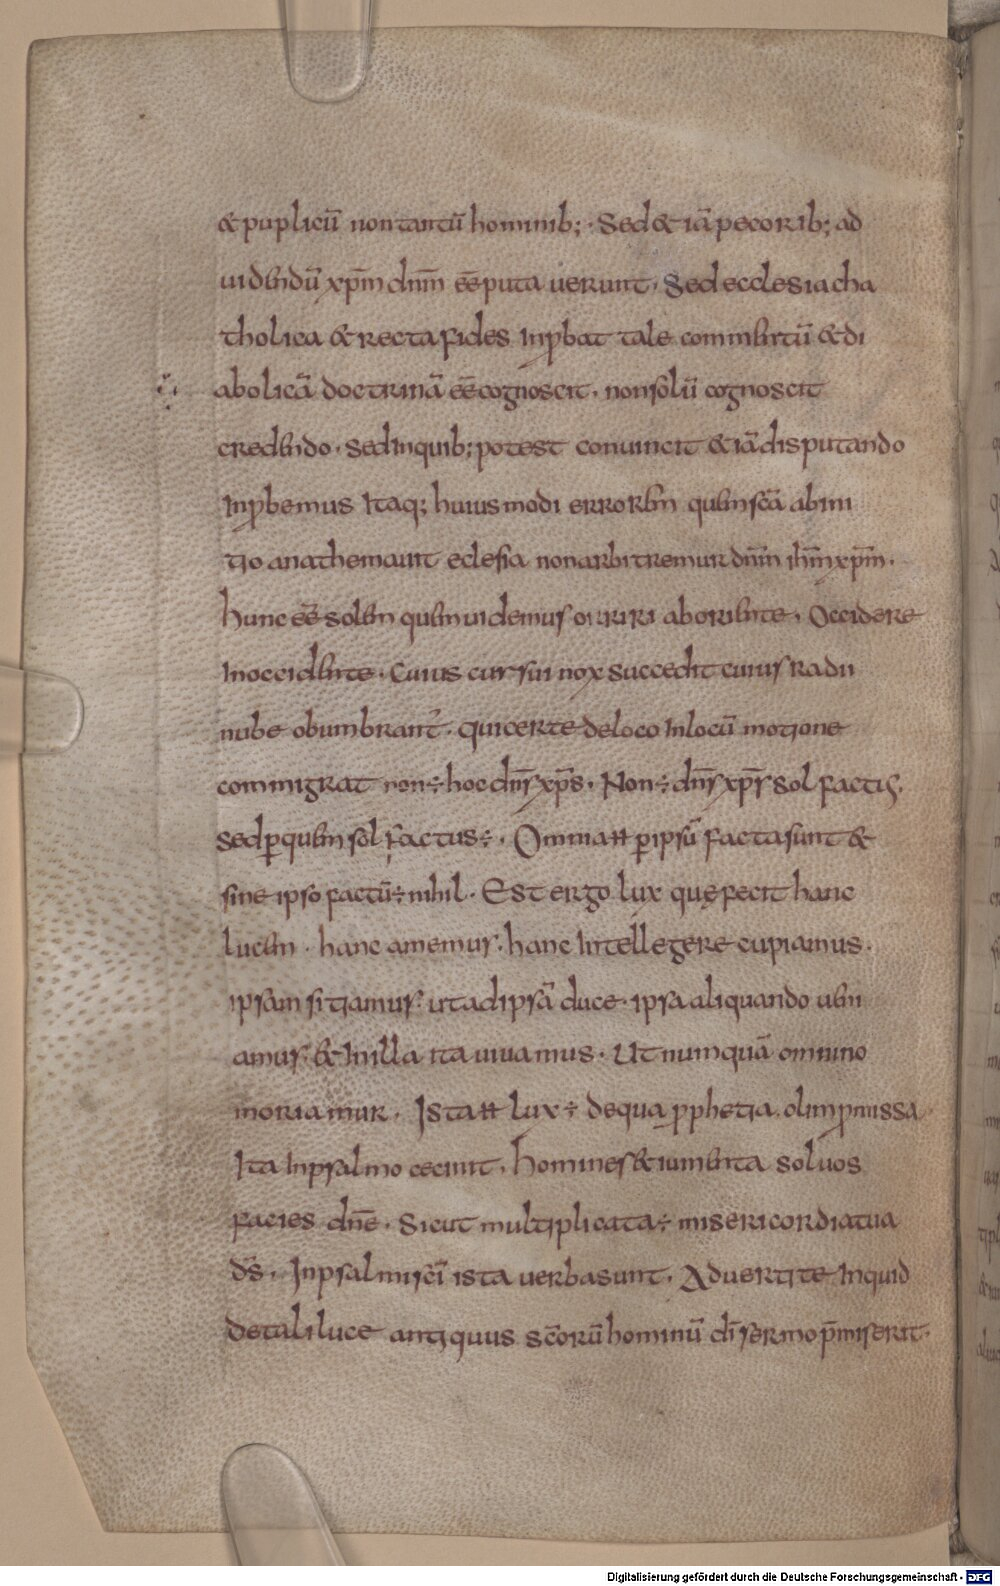 & puplicū non tantū hominib; · Sed & iā pecorib; ad
uidendū xp̄m dn̄m eē putauerunt · Sed ecclesia cha
tholica & recta fides inp̄bat tale commentū & di
abolicā doctrinā eē cognoscit · non solū cognoscit
credendo · sed in quib; potest conuincit & iā disputando
Inp̄bemus Itaq; huiusmodi errorem quem sc̄a ab ini
tio anathemauit eclesia non arbitremur dn̄m ih̄m xp̄m ·
hunc eē solem quem uidemus oriri ab oriente · Occidere
In occidente · Cuius cursui nox succedit cuius radii
nube obumbrant᷑ · qui certe de loco In locū motione
commigrat non ÷ hoc dn̄s xp̄s · Non ÷ dn̄s xp̄s sol factus ·
sed ꝑ quem sol factus ÷ · Omnia ҥ ꝑ ipsū facta sunt &
sine ipso factū ÷ nihil · Est ergo lux quę fecit hanc
lucem · hanc amemus · hanc Intellegere cupiamus ·
ipsam sitiamus · ut ad ipsā duce · ipsa aliquando ueni
amus · & In illa ita uiuamus · Ut numquā omnino
moriamur · Ista ҥ lux ÷ de qua ꝓphetia olim p̄missa
Ita In psalmo cecinit · homines & iumenta saluos
facies dn̄e · Sicut multiplicata ÷ misericordia tua
d̄s · In psalmi sc̄i ista uerba sunt · Aduertite Inquid
de tali luce antiquus sc̄orū hominū dī sermo p̄miserit ·
Digitalisierung gefördert durch die Deutsche Forschungsgemeinschaft - DFG